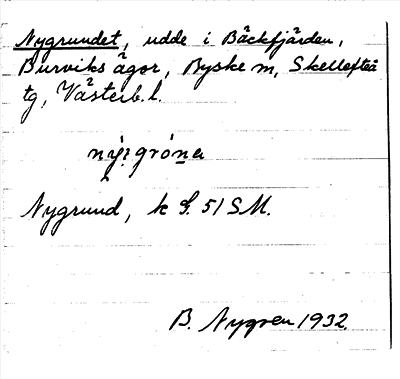 Nygrundet, udde i Bäckfjärden,
Burviks ägor, Byske m, Skellefteå
tg, Västerb. l.
Nygrund, k G. 51 SM.
B. Nygren 1932.